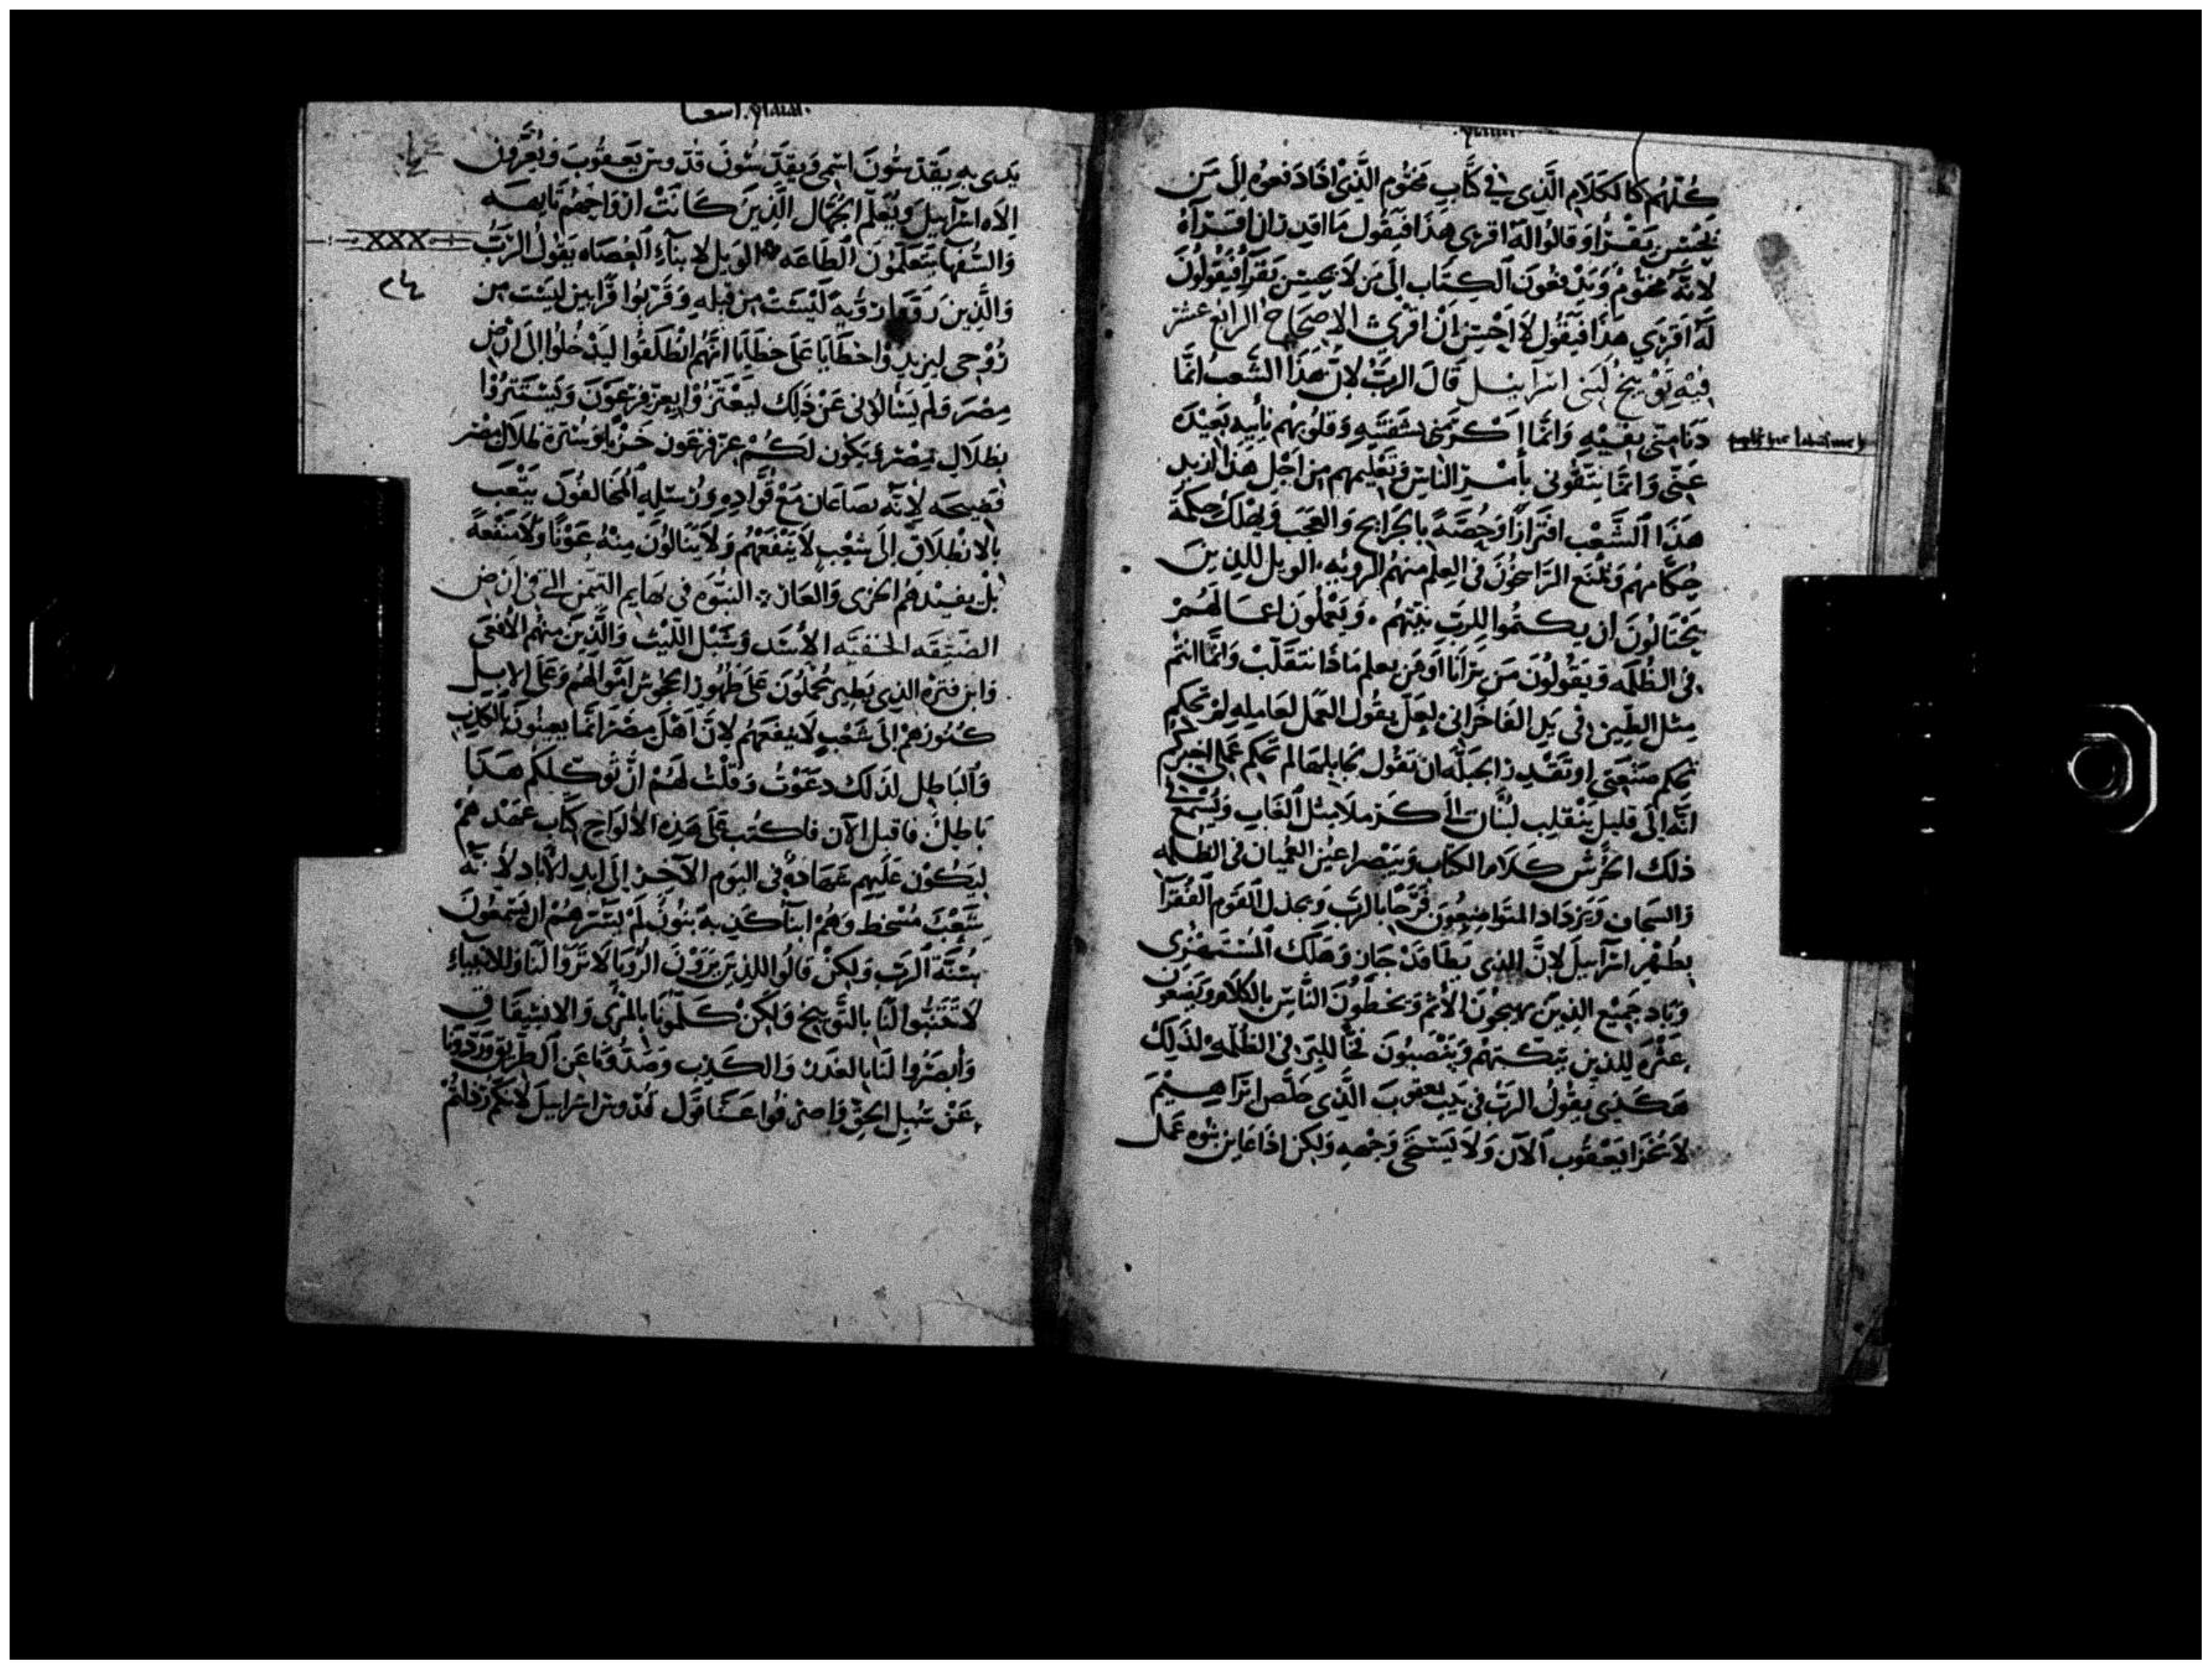 كُلّهُم كالكَلَامِ الَّذِى فِي كتَّابِ مختُوم الَّذِى اذَا دَفعوُه اِلَى مَن
يُحْسِن يَقْرَا وَقالوُا لَه اقرى هَذا فيَقُول مَا اقدِر ان اقراهُ
لانَّهُ مختوُمٌ وَيَدْفعُونَ الكِتَاب اِلَى مَن لَا يحسِن يَقرَأُ فيَقُولُونَ
لَهُ اَقرَي هذَا فيَقُول لَا احْسِن اَنْ اقرَى الاصحَاح الرابع عشر
فيْهِ تَوْبيخ لبَنى اسرَايل قَالَ الرَبّ لانّ هَذا الشَعب انمَّا
دَنا مِنّى بفيْهِ وَانمَّا اِكرَمَنى بشفَتَيهِ وَقلُوبهُم نَايه بَعيْدَه
عَنّى وَانمَّا يتَّقُونى بأمْر النَاسِ وَتَعْليمهم مِن اَجْل هَذا ازيد
هَذَا الشَّعْب افتَرازًا وَحُصَّةً بالجَرَايح وَالعَجَب وَيهْلك حِكمَة
حُكمَّا مهُم وَيمْنَع الرَاسِخُونَ فى العِلم منهُم الرويَه الويل للذِينَ
يَحْتَالونَ ان يكتمُوا للرَب نِيّتهُم وَيَعْمَلُون اعمَالهُمْ
فى الظلمَه وَيَقُولُونَ مَن يَرَانَا اَو مَن يعلم مَاذَا نتَقلّب وَانمَّا انتُم
مِثل الطّين فى يَدِ الفَاخَرانى لعَلّ يقُول العَمَل لعَامِلِهِ لم تحكم
تحكم صَنْعَتى او تَقْدِر الجَبلَّه ان تقُول لجَابلهَا لم تحكم عَلى
انَّه اِلَى قليل يَنْقَلِب لبْنَان اِلَى كَرملَا مِثل الغَاب وَيُسْمِع فى
ذلِك الخُرْش كَلَام الكتاب وَيَبْصِر اعيُن العُميَان فى الظلمَه
وَالسجَان وَيَزدَاد المتَواضِعُون فَرَحًا بالرَب وَيجذل القَوم الفُقرَآ
بطُهْرِ اسرَآييل لانَّ الذِى بَطَا قَدْ جَاز وَهَلَك المُسْتَهْزى
وَبَاد جَميْع الذين يهيجُونَ الأثم وَيخطّؤُنَ النَّاسَ بالكلَام وَيَضعُونَ
عَثرَه للذين يبَكتهُم وَيَنْصِبُونَ فَخًّا للبِرّ فى الظُلمَهِ لذَلِكَ
هَكذَى يقُولُ الرَبّ فى بَيت يعقوب الَّذِى خَلَّص ابْرَاهِيْمَ
لَا يَخزَا يَعْقُوب الآن وَلَا يَسْتَحَى وَجْهه وَلكِن اذا عَاين بنوُه عَمَل
اسعيا
يَدى بِهِ يَقدّسُونَ اسْمى وَيقَدّسُونَ قُدّوسَ يَعقُوبَ وَيُعِزّونَ
الاهَ اسرَآييلَ وَيَعْلَم الجُهَّال الَّذينَ كَانَتْ ارْوَاحهُم تَايهَه
وَالسُّفهَآ يَتَعَلَّمُونَ الطَاعَه الوَيل لابنَآءِ العُصَاه يَقُولُ الرَبُّ
XXX
وَالَّذينَ رَوّوا رَوّيه لَيْسَتْ مِن قِبَلهِ وَقرّبُوا قرَّابِين ليْسَت مِن
رُوْحِى ليزيدوْا خطَايَا عَلَى خطَايَا انَّهُم انْطَلَقُوا ليَدْخلوُا اِلَى ارْض
مِصْرَ وَلم يَسَالوْنى عَنْ ذَلك ليَعْتَزُّوْا بعِزّ فرْعَوْنَ وَيَسْتَتِرُوْا
بظِلَال مصْر وَيكوُن لَكُمْ عِزّ فرعَون خَزْيًا وَسُترة ظلَال مِصْر
فضِيحَه لانَّه بصَاعَان مَعْ قُوَّادِهِ وَرُسُلِهِ المخالفُونَ يَتْعَب
بالانْطِلَاق اِلَى شعْبٍ لَا يَنْفَعَهُم وَلَا يَنَالُونَ مِنْهُ عَوْنًا وَلَا مَنْفعَة
بَلْ يفيْدهُم الخزى وَالعَار النبُوَه فى بهَايم التيْمَن التى فى ارْض
الضّيقَه الخفيَّه الأسَد وَشَبْل الليْث وَالَّذينَ منهُم الأفعَى
وَابن فترَه الذِى يَطير يُحْمَلُون عَلى ظهُور الجحُوش امْوَالهُم وَعَلى الابل
كنُوزهُمْ اِلَى شَعْبٍ لَا يَنفَعَهُم لانَّ اهْل مِصْرَ انمَّا يعِينُونَ بالكذِب
وَالبَاطِل لذلك دعَوْت وَقلْتُ لَهُمْ انَّ تُوكّلكُم هَذَا
بَاطِلٌ فاقبل الآن فاكتُب عَلَى هَذِهِ الألوَاح كتَّاب عَقْدهُم
ليَكُوْن عَلَيهم شهَادَةً فى اليَوم الآخِر اِلَى اَبدِ الآبَاد لأنَّهُ
شَعْبٌ مُسْخط وَهُمْ ابنَآ كَذبه بَنُونَ لَمْ يَسُرّهُمْ ان يَسْمَعُونَ
سُنَّة الرَب وَلكِنْ قالُوا للذِينَ يَرَوْنَ الرُّؤيَا لَا تَرَوا لنَا وَللانبيَآء
لَا تتَنَبّوا لَنَا بالتَّوبيخ وَلكِنْ كلّموُنَا بالمَرْى وَالانشقَاق
وَأبصرُوا لَنَا بالغَدْر وَالكَذِب وَصدُّونَا عَن الطَريْق وَرَدُّونَا
عَنْ سُبل الحَقّ وَاصْرفُوا عَنَّا قَول قدّوس اسرَاييل لأنكُمْ رَذلتُمْ